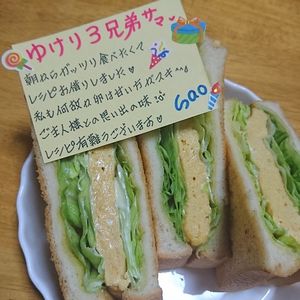 ゆけり3兄弟サマ
朝からガッツリ食べたくて
レシピお借りしました♡
私も何故か卵は甘い方がスキ〜
ご主人様との思い出の味♪
レシピ有難うございます♡
sao